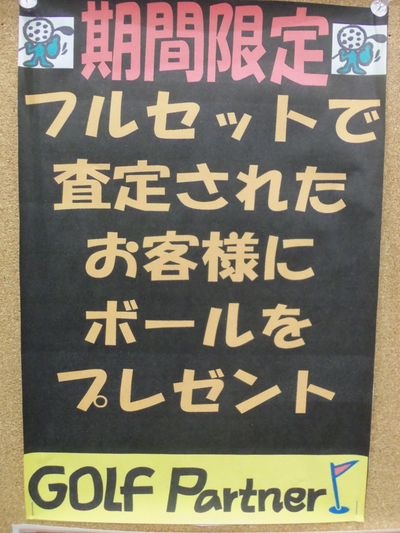 期間限定
フルセットで
査定された
お客様に
ボールを
プレゼント
GOLF Partner